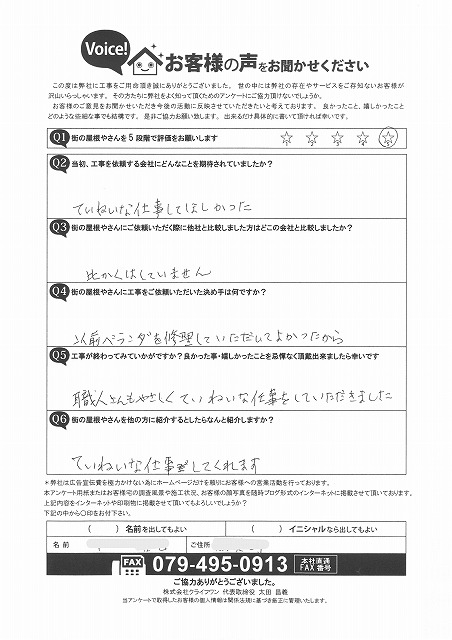 Voice! お客様の声をお聞かせください
この度は弊社に工事をご用命頂き誠にありがとうございました。 世の中には弊社の存在やサービスをご存知ないお客様が
沢山いらっしゃいます。 その方たちに弊社をよく知って頂くためのアンケートにご協力頂けないでしょうか。
お客様のご意見をお聞かせいただき今後の活動に反映させていただきたいと考えております。 良かったこと、嬉しかったこと
どのような些細な事でも結構です。 是非ご協力お願い致します。 出来るだけ具体的に書いて頂ければ幸いです。
Q1 街の屋根やさんを5段階で評価をお願いします ☆ ☆ ☆ ☆ ☆
Q2 当初、工事を依頼する会社にどんなことを期待されていましたか?
ていねいな仕事してほしかった
Q3 街の屋根やさんにご依頼いただく際に他社と比較しました方はどこの会社と比較しましたか?
比かくはしていません
Q4 街の屋根やさんに工事をご依頼いただいた決め手は何ですか?
以前ベランダを修理していただいてよかったから
Q5 工事が終わってみていかがですか?良かった事・嬉しかったことを忌憚なく頂戴出来ましたら幸いです
職人さんもやさしくていねいな仕事をしていただきました
Q6 街の屋根やさんを他の方に紹介するとしたらなんと紹介しますか?
ていねいな仕事してくれます
*弊社は広告宣伝費を極力かけない為にホームページだけを頼りにお客様への営業活動を行っております。
本アンケート用紙またはお客様宅の調査風景や施工状況、お客様の顔写真を随時ブログ形式のインターネットに掲載させて頂いております。
上記内容をインターネットや印刷物に掲載させて頂いてもよろしいでしょうか?
下記の中から〇印をお付下さい。
( ) 名前を出してもよい ( ) イニシャルなら出してもよい
名 前 ご住所
FAX 079-495-0913 本社直通 FAX番号
ご協力ありがとうございました。
株式会社クライフワン 代表取締役 太田 昌義
当アンケートで取得したお客様の個人情報は関係法規に基づき厳正に管理いたします。